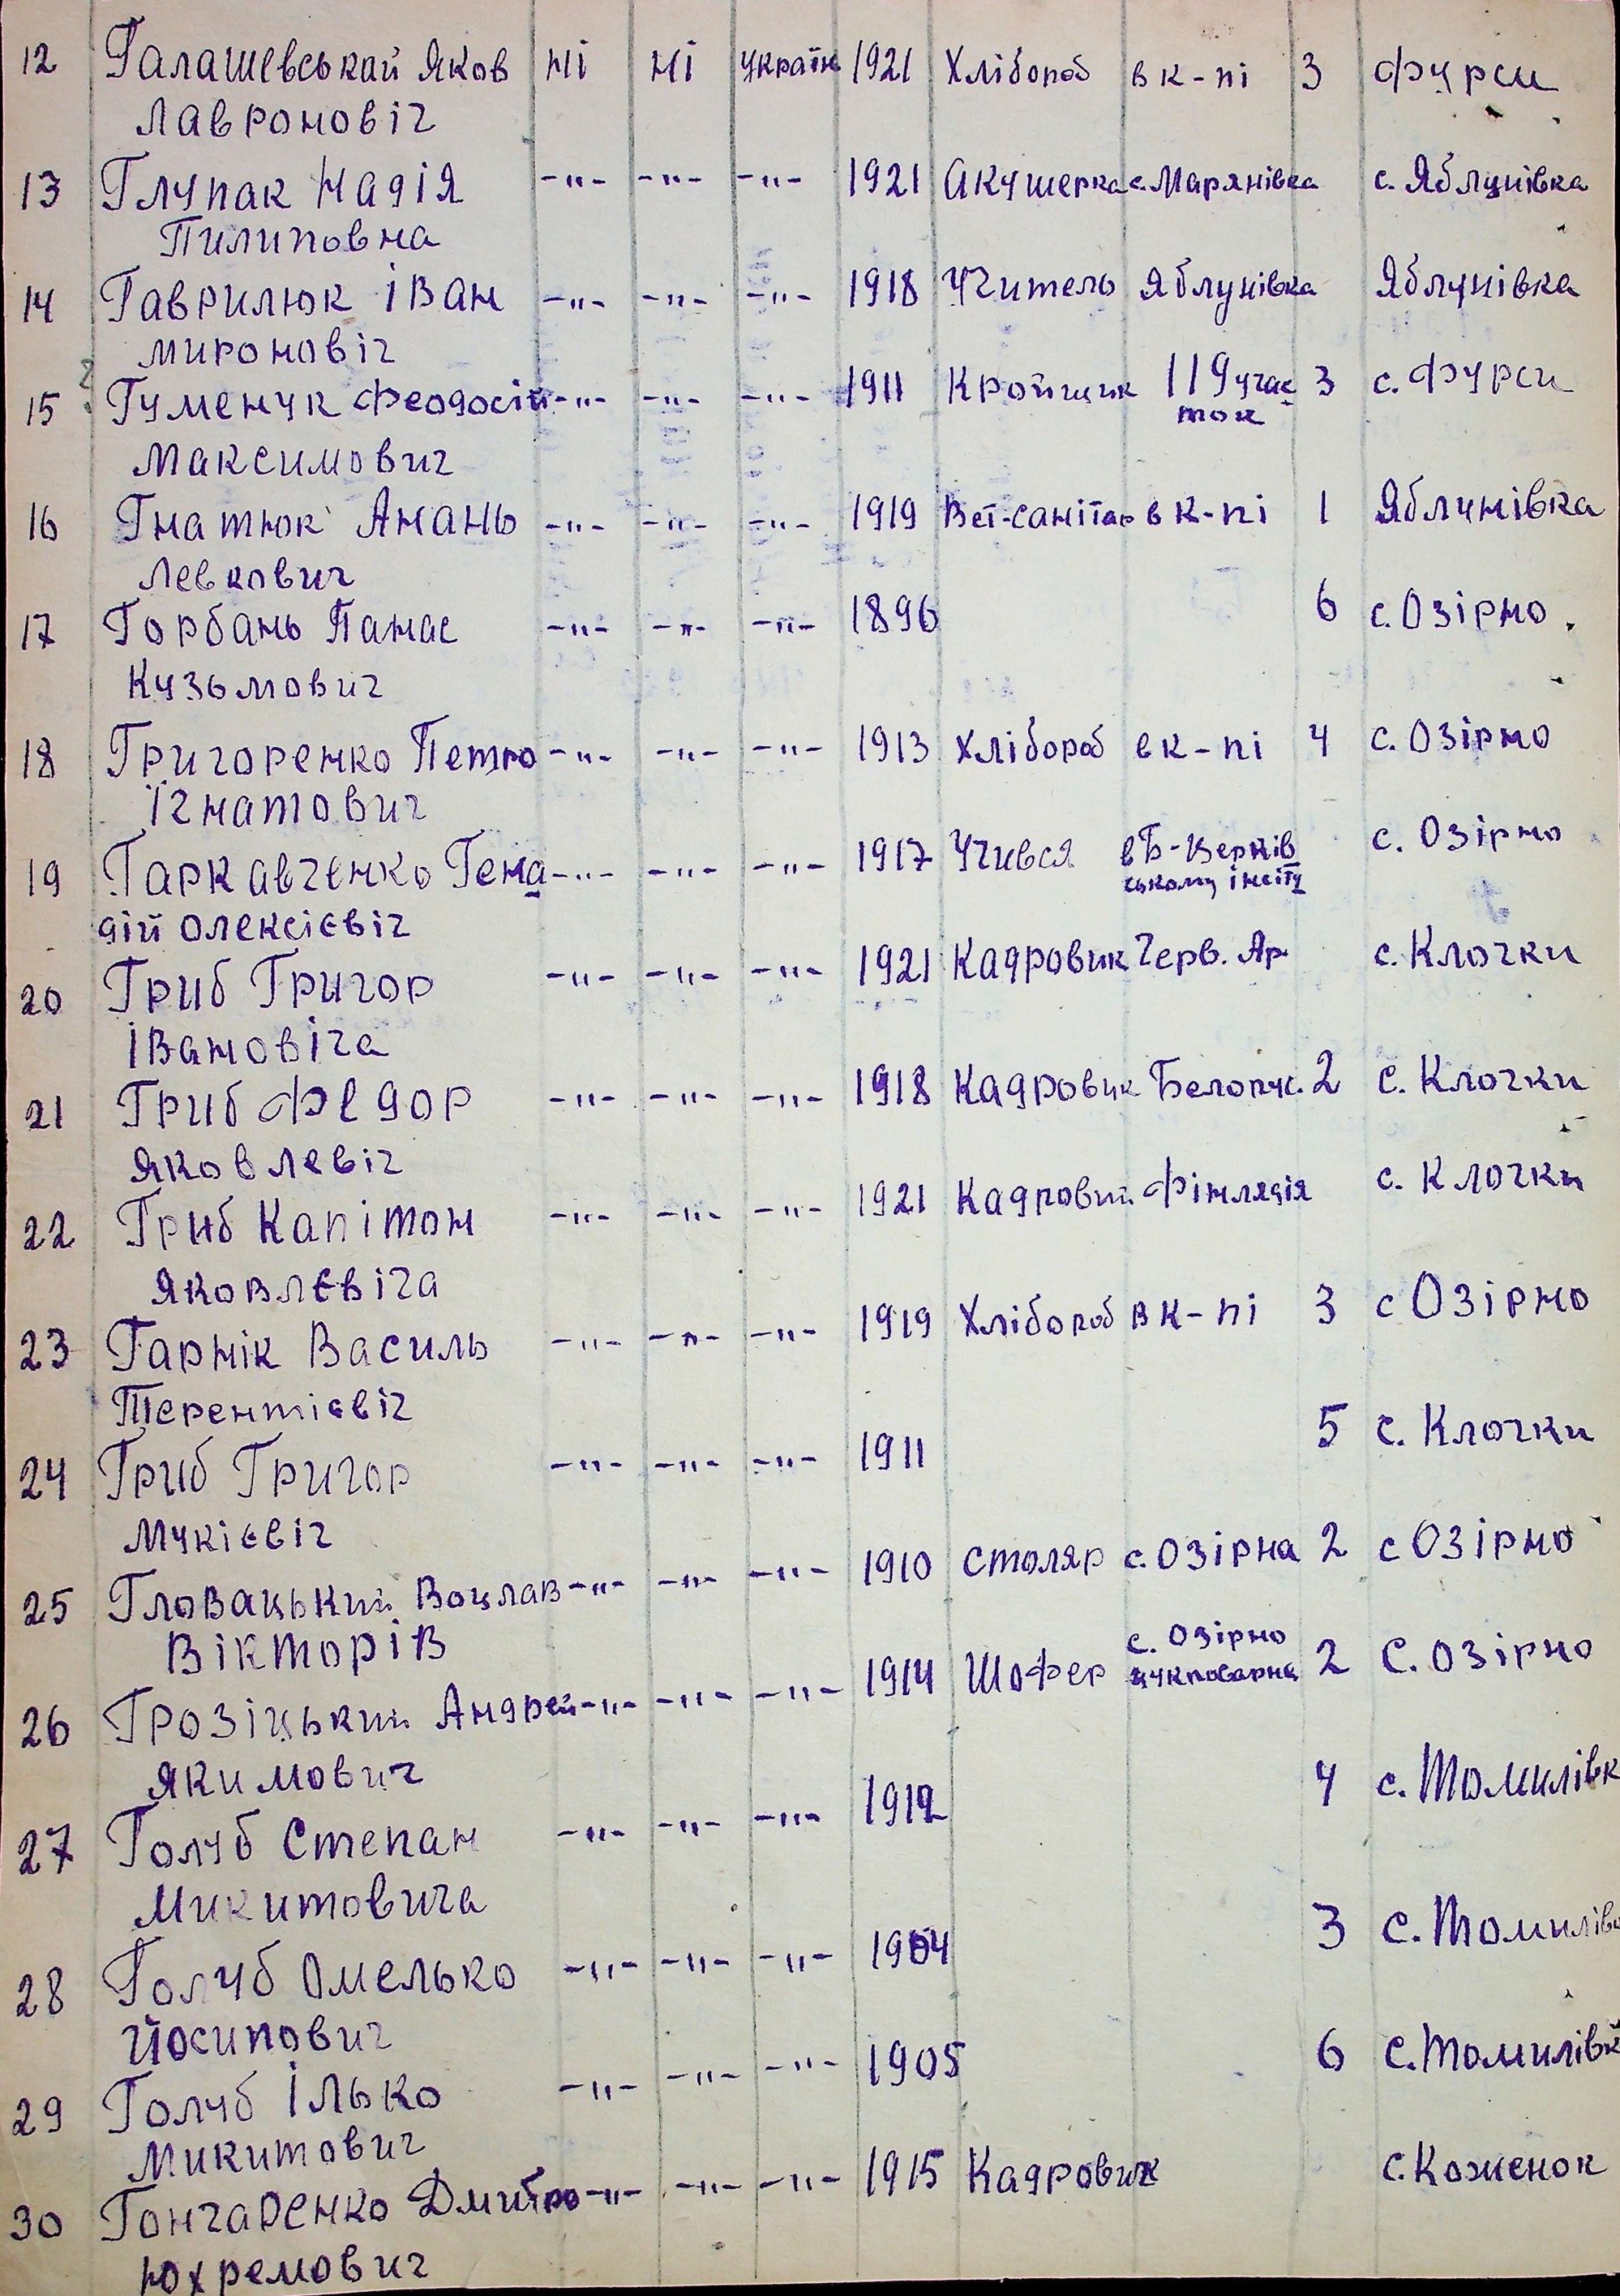 12 Галашевськай Яков ні ні україн 1921 Хлібороб в к-пі 3 Фурси
Лавроновіч
13 Глупак Надія -"- -"- -"- 1921 Акушерка с. Марянівка с. Яблунівка
Пилиповна
14 Гаврилюк Іван -"- -"- -"- 1918 Учитель Яблунівка Яблунівка
Мироновіч
15 Гуменчук Феодосій -"- -"- -"- 1911 Кройщик 119 учас 3 с. Фурси
ток
Максимович
16 Гнатюк Анань -"- -"- -"- 1919 Вет-санітар в к-пі 1 Яблунівка
Левкович
17 Горбань Панас -"- -"- -"- 1896 6 с. Озірно
Кузьмович
18 Григоренко Петро -"- -"- -"- 1913 Хлібороб в к-пі 4 с. Озірно
Ігнатович
19 Гаркавченко Гена -"- -"- -"- 1917 Учився в Б-Церків с. Озірно
ському інсіту
дій Олексієвіч
20 Гриб Григор -"- -"- -"- 1921 Кадровик Черв. Ар. с. Клочки
Івановіча
21 Гриб Федор -"- -"- -"- 1918 Кадровик 2 с. Клочки
Яковлевіч
22 Гриб Капітон -"- -"- -"- 1921 Кадровий Фінляція с. Клочки
Яковлєвіча
23 Гарнік Василь -"- -"- -"- 1919 Хлібороб в к-пі 3 с Озірно
Терентієвіч
24 Гриб Григор -"- -"- -"- 1911 5 с. Клочки
Мукієвіч
25 Гловацький Воцлав -"- -"- -"- 1910 Столяр с. Озірна 2 с Озірно
Вікторів
26 Грозіцький Андрей -"- -"- -"- 1914 Шофер с. Озірно 2 с. Озірно
цукроварня
Якимович
27 Голуб Степан -"- -"- -"- 1912 4 с. Томилівк
Микитовича
28 Голуб Омелько -"- -"- -"- 1904 3 с. Томилівк
Йосипович
29 Голуб Ілько -"- -"- -"- 1905 6 с. Томилівк
Микитович
30 Гончаренко Дмитро -"- -"- -"- 1915 Кадровик с. Коженок
Юхремович